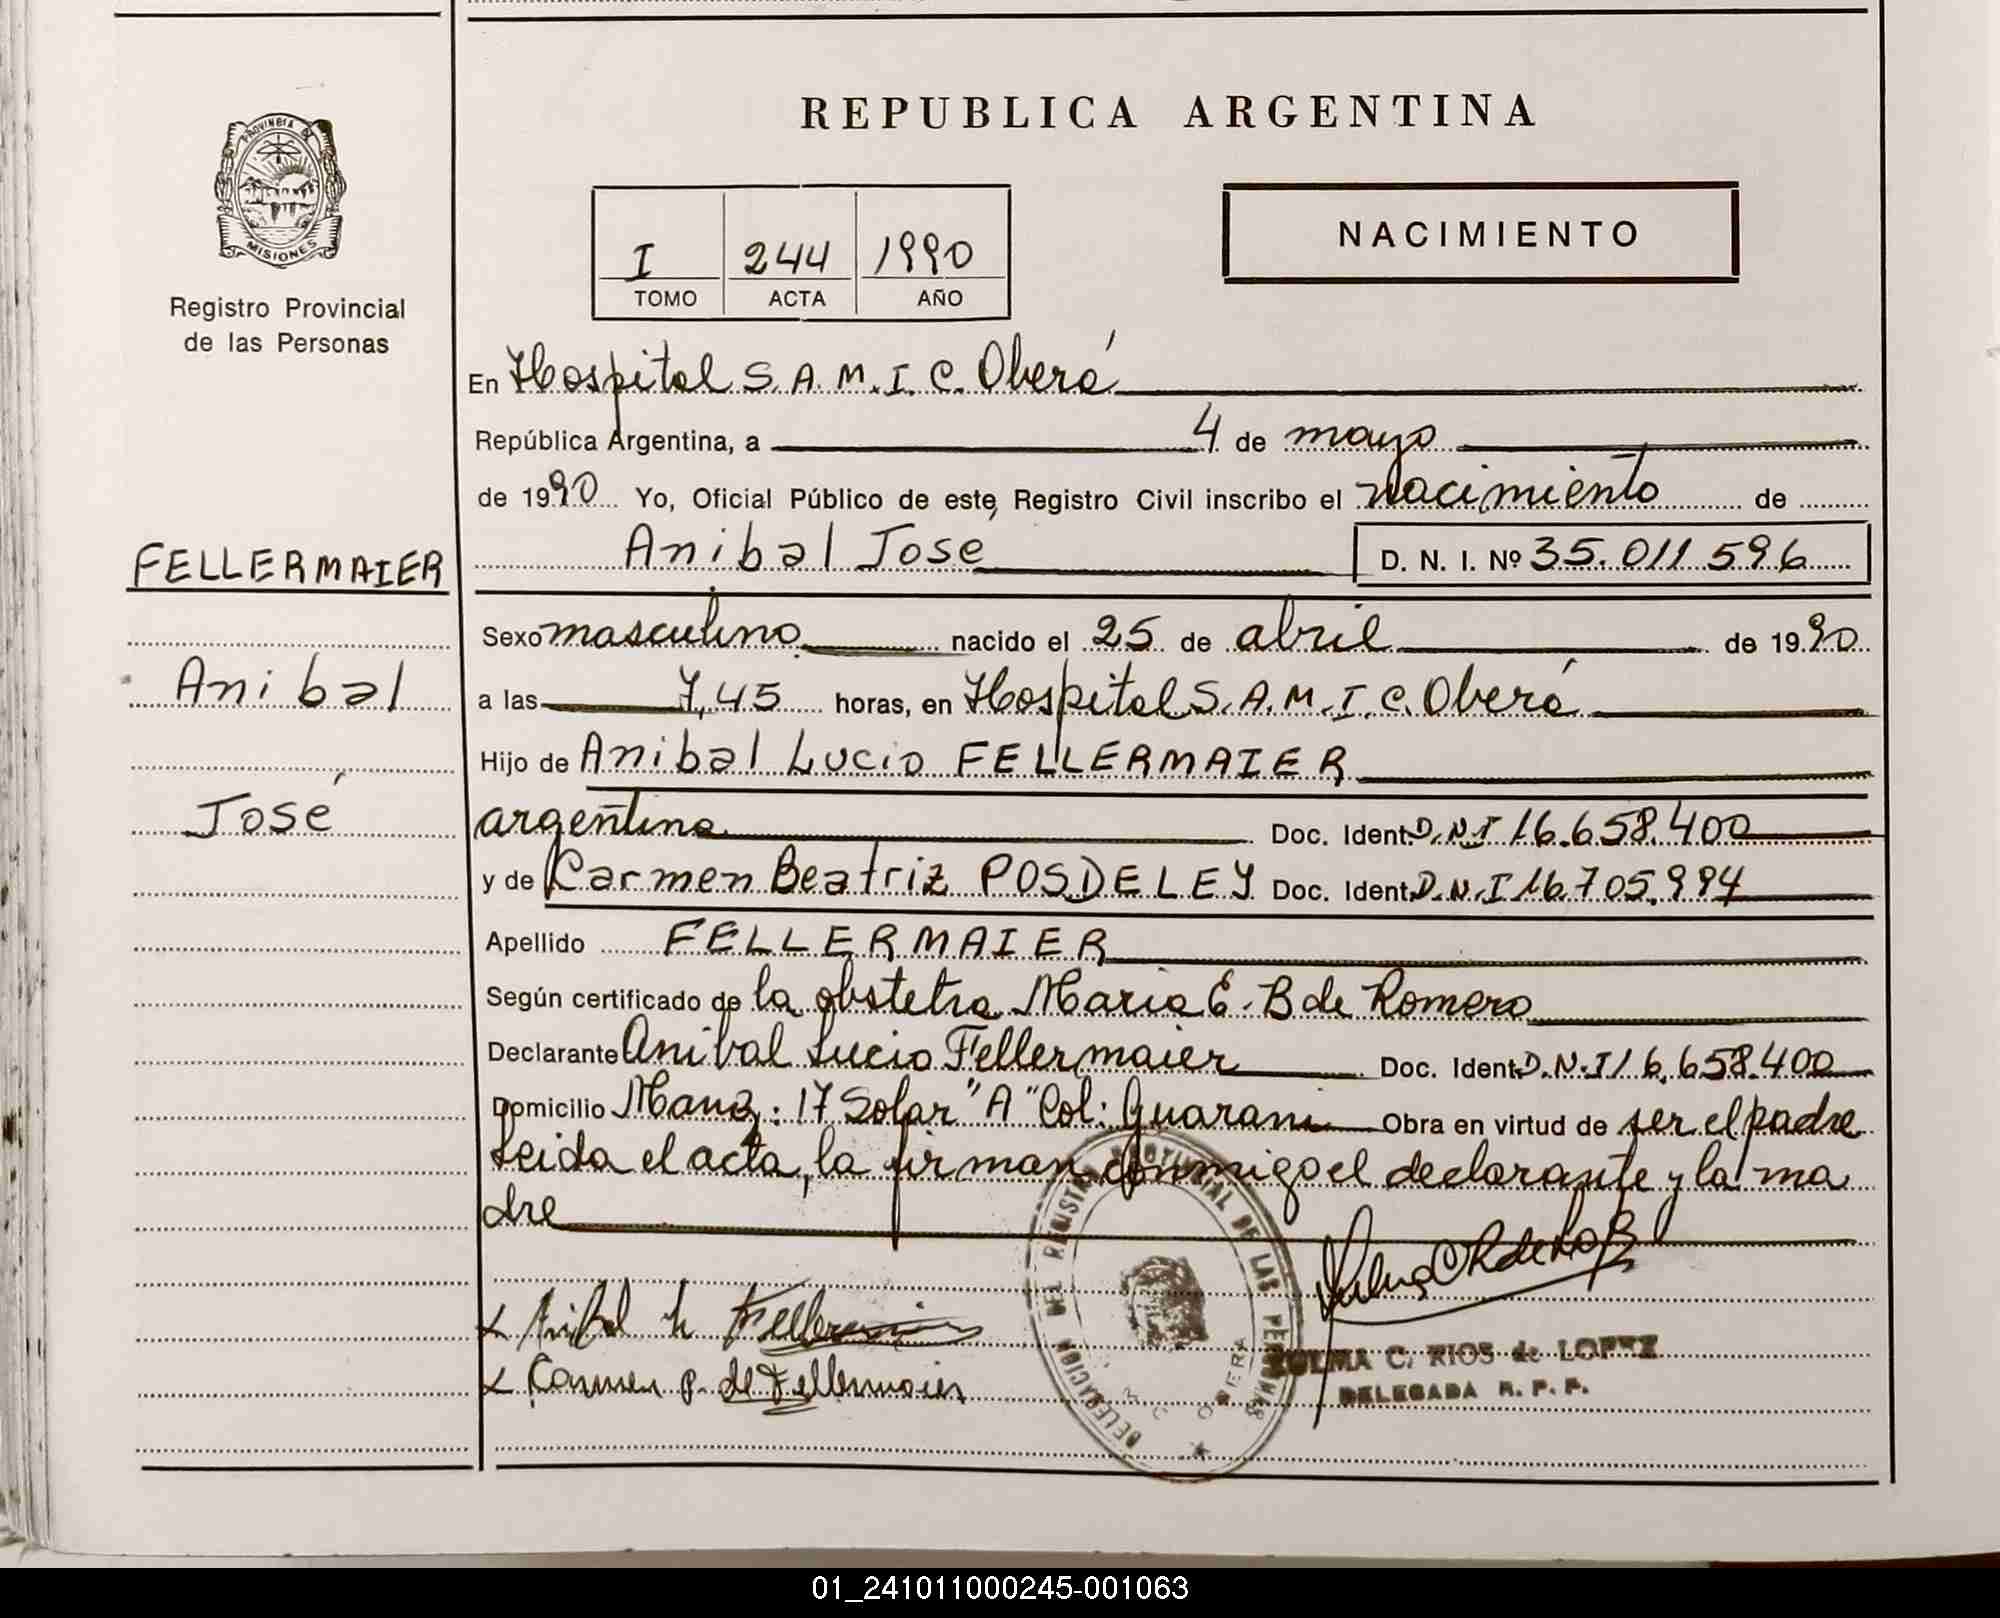 REPUBLICA ARGENTINA
PROVINCIA DE
MISIONES
Registro Provincial
de las Personas
I 244 1990
TOMO ACTA AÑO
NACIMIENTO
En Hospital S.A.M.I.C. Oberá
República Argentina, a 4 de mayo
de 1990 Yo, Oficial Público de este Registro Civil inscribo el nacimiento de
Anibal José D. N. I. Nº 35.011.596
FELLERMAIER
Anibal
José
Sexo masculino nacido el 25 de abril de 1990
a las 7,45 horas, en Hospital S.A.M.I.C. Oberá
Hijo de Anibal Lucio FELLERMAIER
argentino Doc. Ident. D.N.I 16.658.400
y de Carmen Beatriz POSDELEY Doc. Ident. D.N.I 16.705.994
Apellido FELLERMAIER
Según certificado de la obstetra Maria E. B de Romero
Declarante Anibal Lucio Fellermaier Doc. Ident. D.N.I 16.658.400
Domicilio Manz: 17 Solar "A" Col: Guarani Obra en virtud de ser el padre
Leida el acta, la firman conmigo el declarante y la ma
dre
DELEGACION DEL REGISTRO PROVINCIAL DE LAS PERSONAS
OBERA
Anibal L. Fellermaier
Carmen P. de Fellermaier
ZULMA C. RIOS de LOPEZ
DELEGADA R. P. P.
01_241011000245-001063